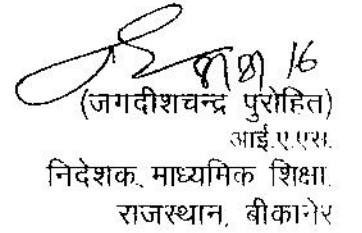 16
(जगदीशचन्द्र पुरोहित)
आई.ए.एस.
निदेशक, माध्यमिक शिक्षा,
राजस्थान, बीकानेर